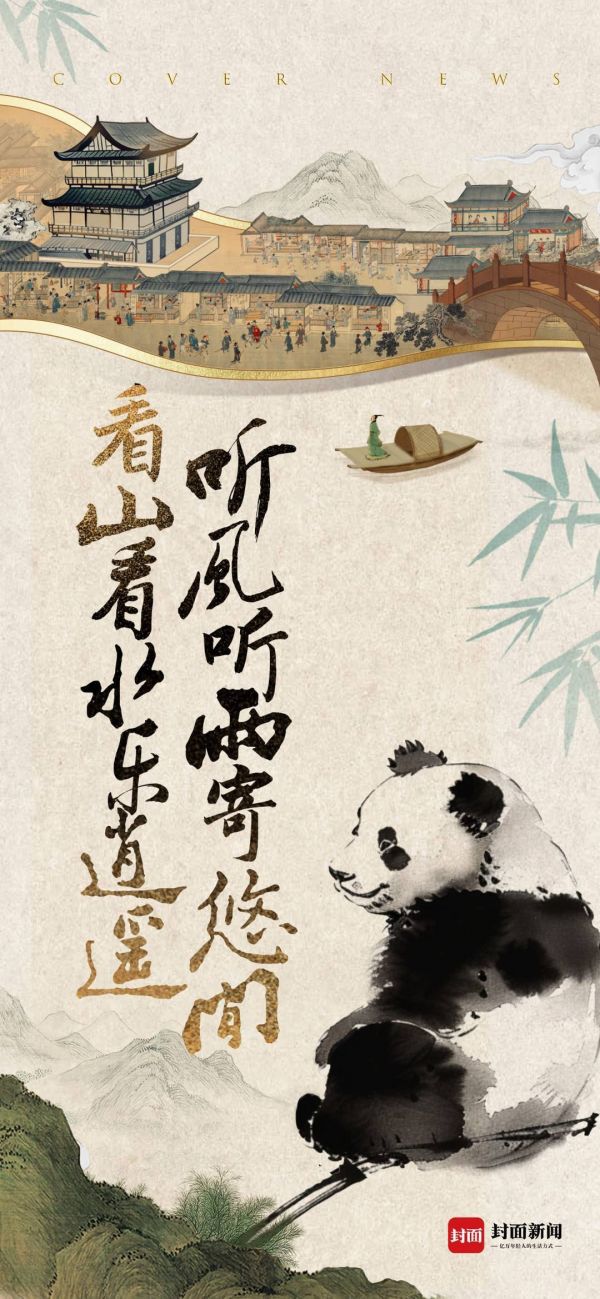 COVER NEWS
看山看水乐逍遥
听風听雨寄悠閒
封面 封面新闻
—亿万年轻人的生活方式—